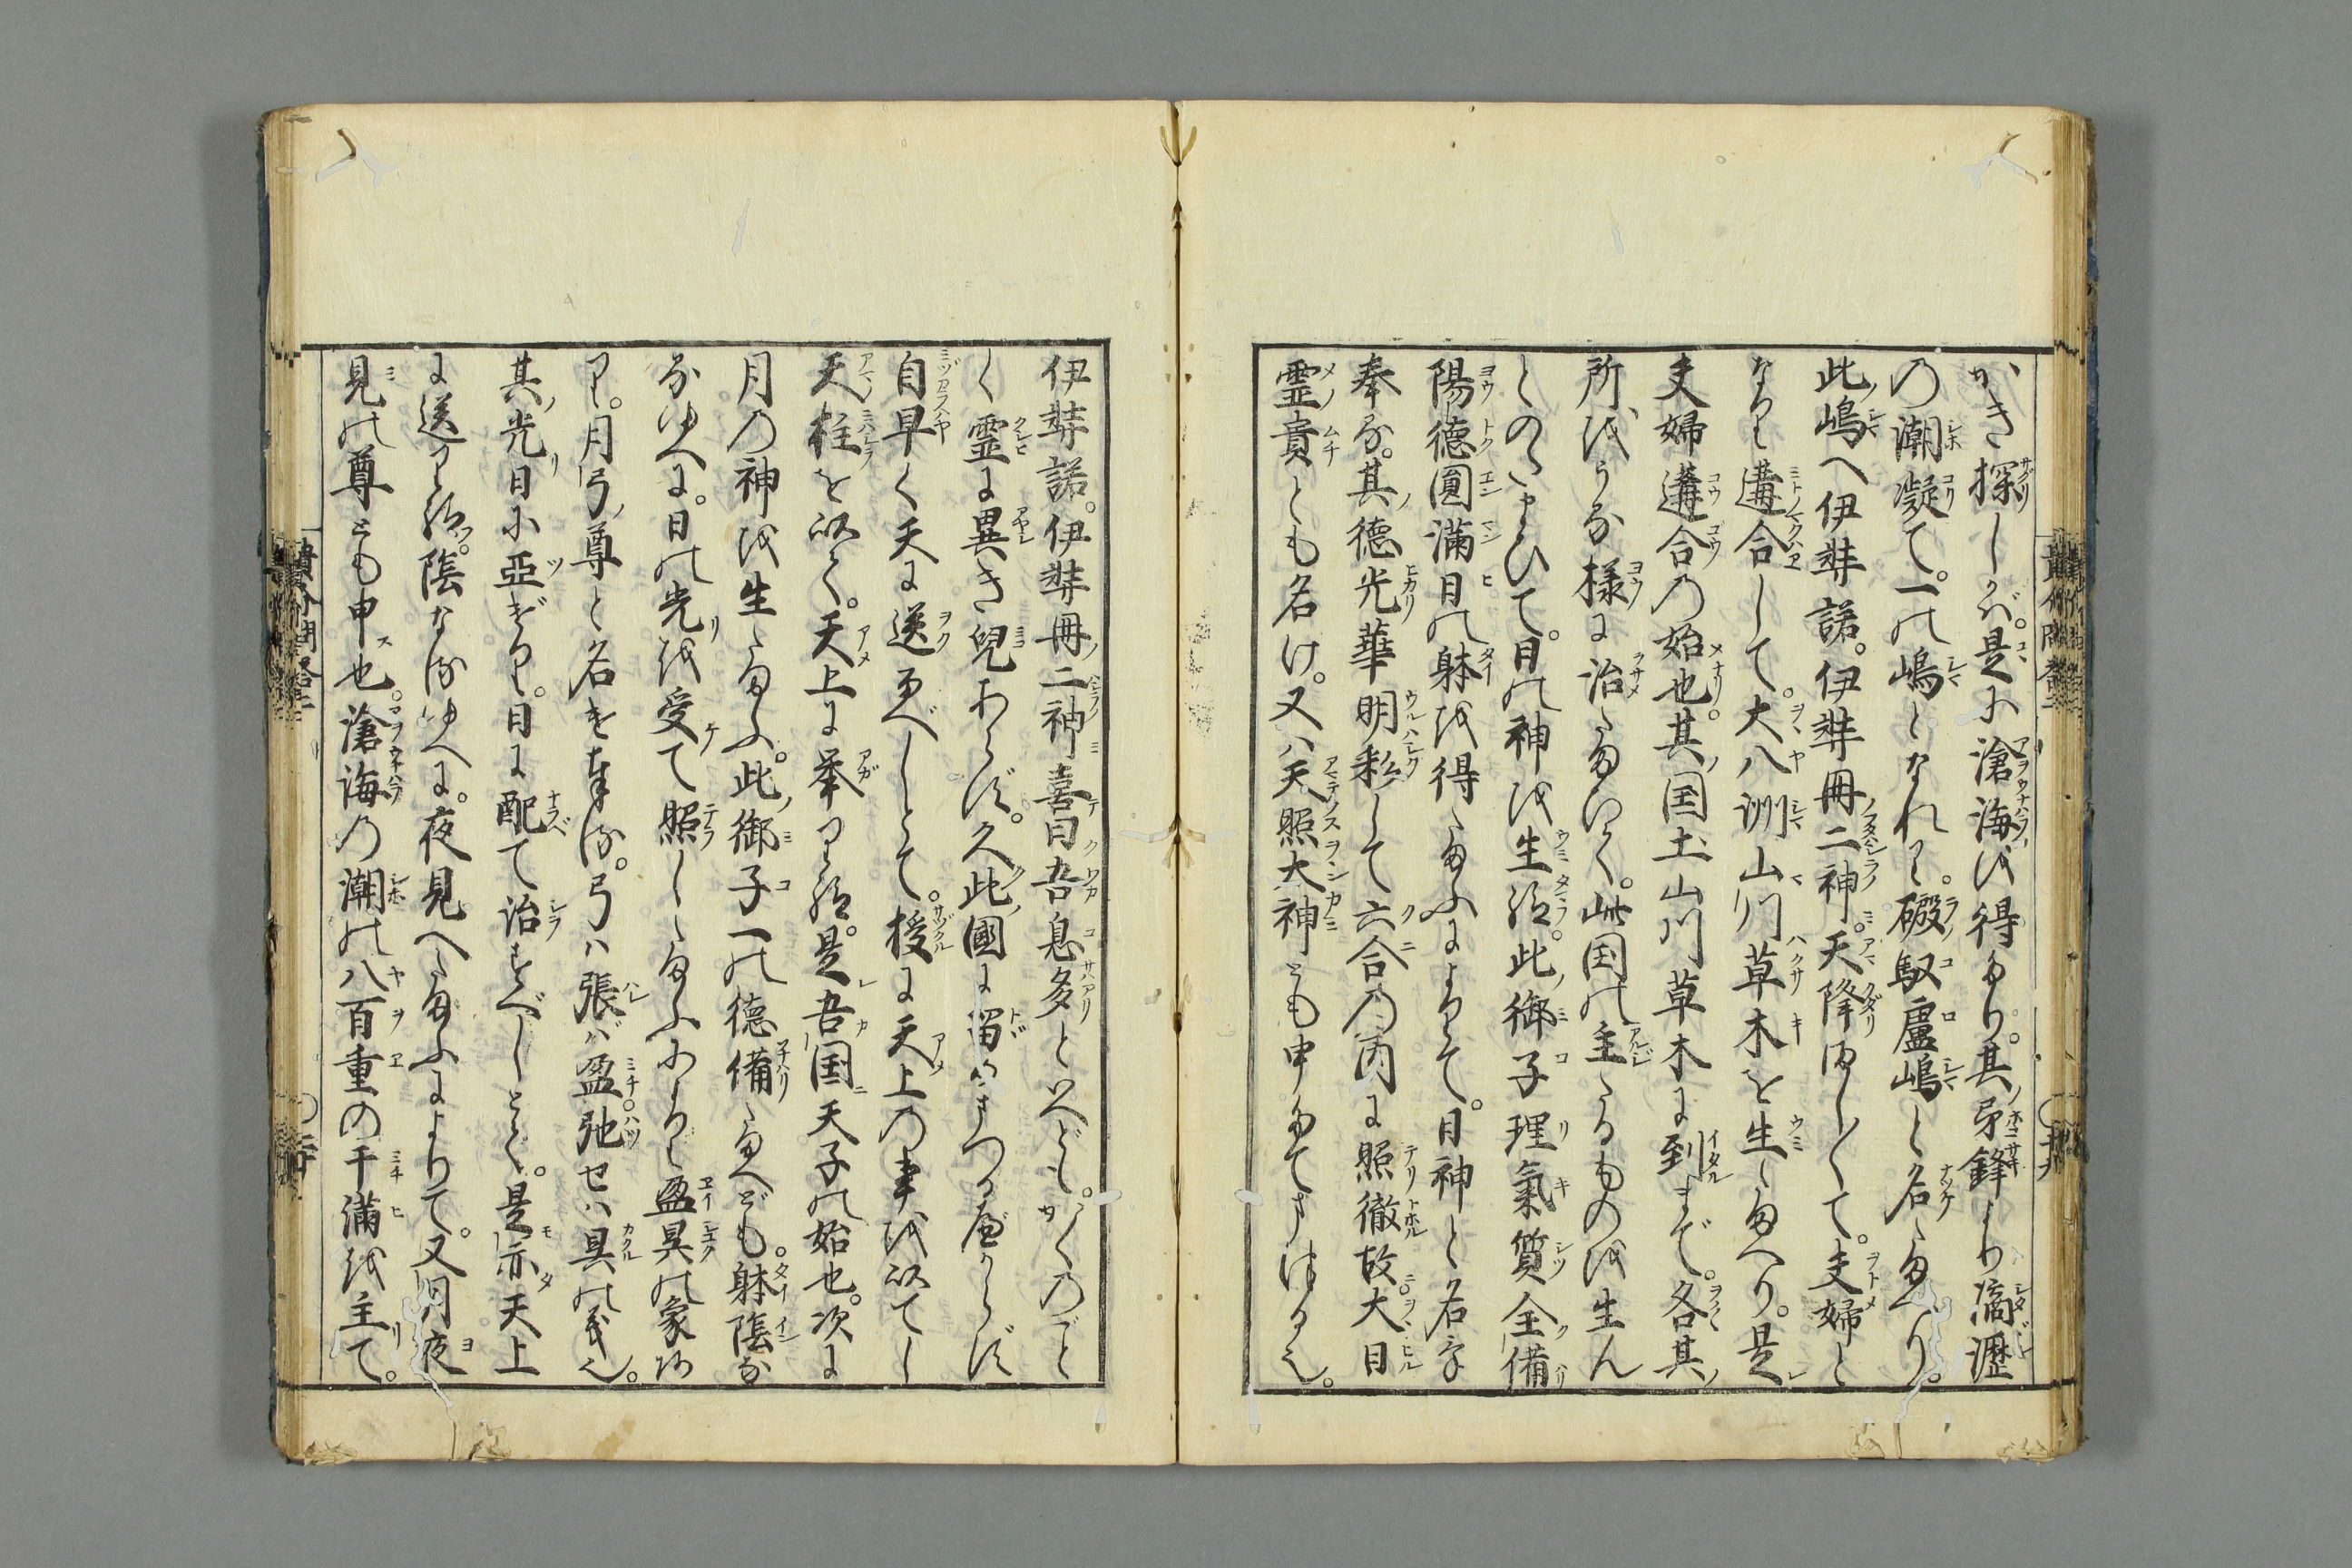 かき探しかば。是に滄海を得たり。其矛鋒より滴瀝
の潮凝て。一の嶋となれり。磤馭盧嶋と名たまへり。
此嶋へ伊弉諾。伊弉冊二神。天降ましして。夫婦と
なりて遘合して。大八洲山川草木を生たまへり。是
夫婦遘合の始也。其国土山川草木に到まで。各其
所をうる様に治たまはく。此国の主たるものを生ん
とのたまひて。日の神を生給。此御子理氣質全備
陽徳圓満日の躰を得たまふによりて。日神と名
奉る。其徳光華明彩して六合の内に照徹故大日
霊貴とも名け。又ハ天照太神とも申
伊弉諾。伊弉冊二神喜曰吾息多といへども。かくのごと
く霊に異き兒あらず。久此國に留
自早く天に送るべしとて。授に天上の事を以てし
天柱を以て。天上に挙り給。是吾国天子の始也。次に
月の神を生たまふ。此御子一の徳備たまへども。躰陰な
るゆへに。日の光を受て照したまふにより盈昃の象有
り。月弓尊と名を奉る。弓ハ張バ盈弛セハ昃の義也。
其光日に亞げり。日に配て治すべしとて。是亦天上
に送り給。陰なるゆへに。夜見へたまふによりて。又月夜
見の尊とも申也。滄海の潮の八百重の干満を主て。